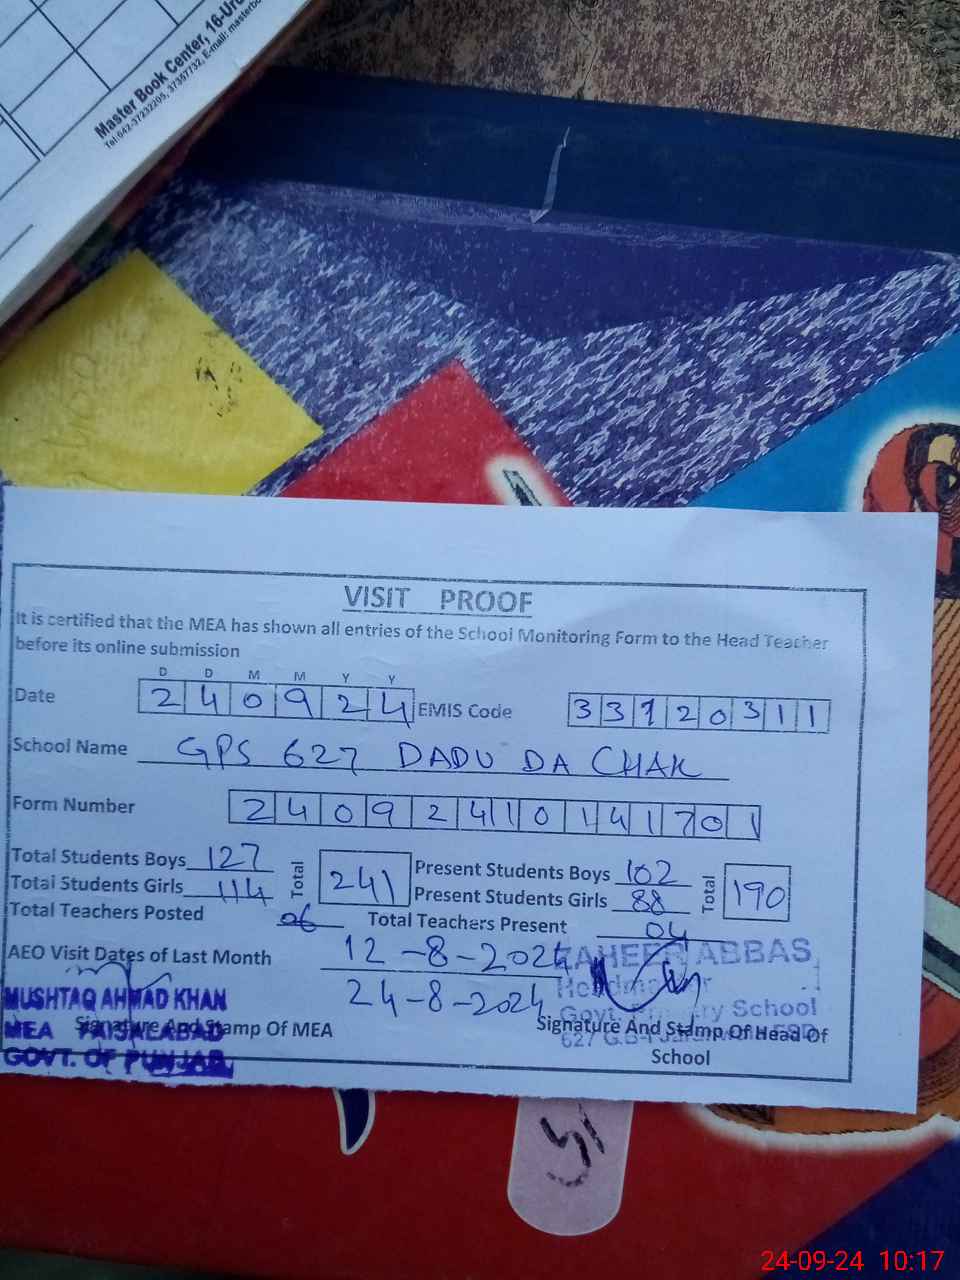 Master Book Center, 16-Urd
Tel:042-37232205, 37357732, E-mail: masterbo
VISIT PROOF
It is certified that the MEA has shown all entries of the School Monitoring Form to the Head Teacher
before its online submission
D D M M Y Y
Date 2 4 0 9 2 4 EMIS Code 3 3 1 2 0 3 1 1
School Name GPS 627 DADU DA CHAK
Form Number 2 4 0 9 2 4 1 0 1 4 1 7 0 1
Total Students Boys 127 Total 241 Present Students Boys 102 Total 190
Total Students Girls 114 Present Students Girls 88
Total Teachers Posted 06 Total Teachers Present 04
AEO Visit Dates of Last Month 12-8-2024
24-8-2024
ZAHEER ABBAS
Headmaster
Govt. Primary School
627 G.B
MUSHTAQ AHMAD KHAN
MEA FAISALABAD
GOVT. OF PUNJAB
Signature And Stamp Of MEA
Signature And Stamp Of Head Of
School
24-09-24 10:17